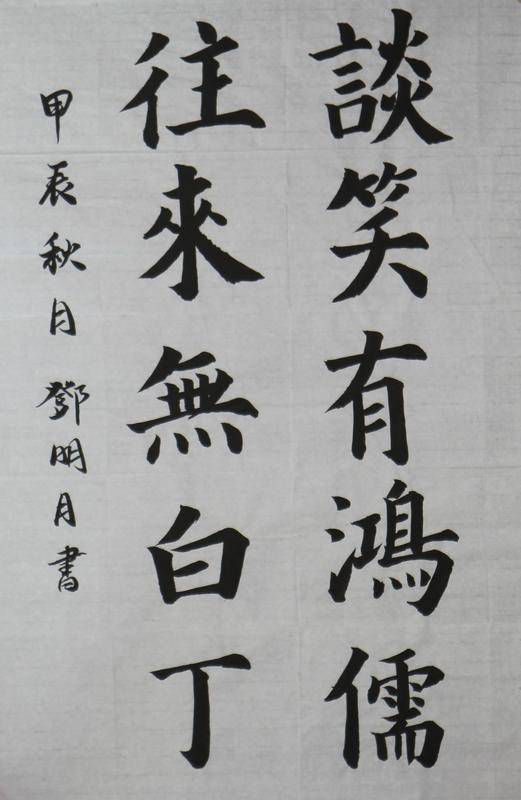 談笑有鴻儒
往來無白丁
甲辰秋月鄧明月書